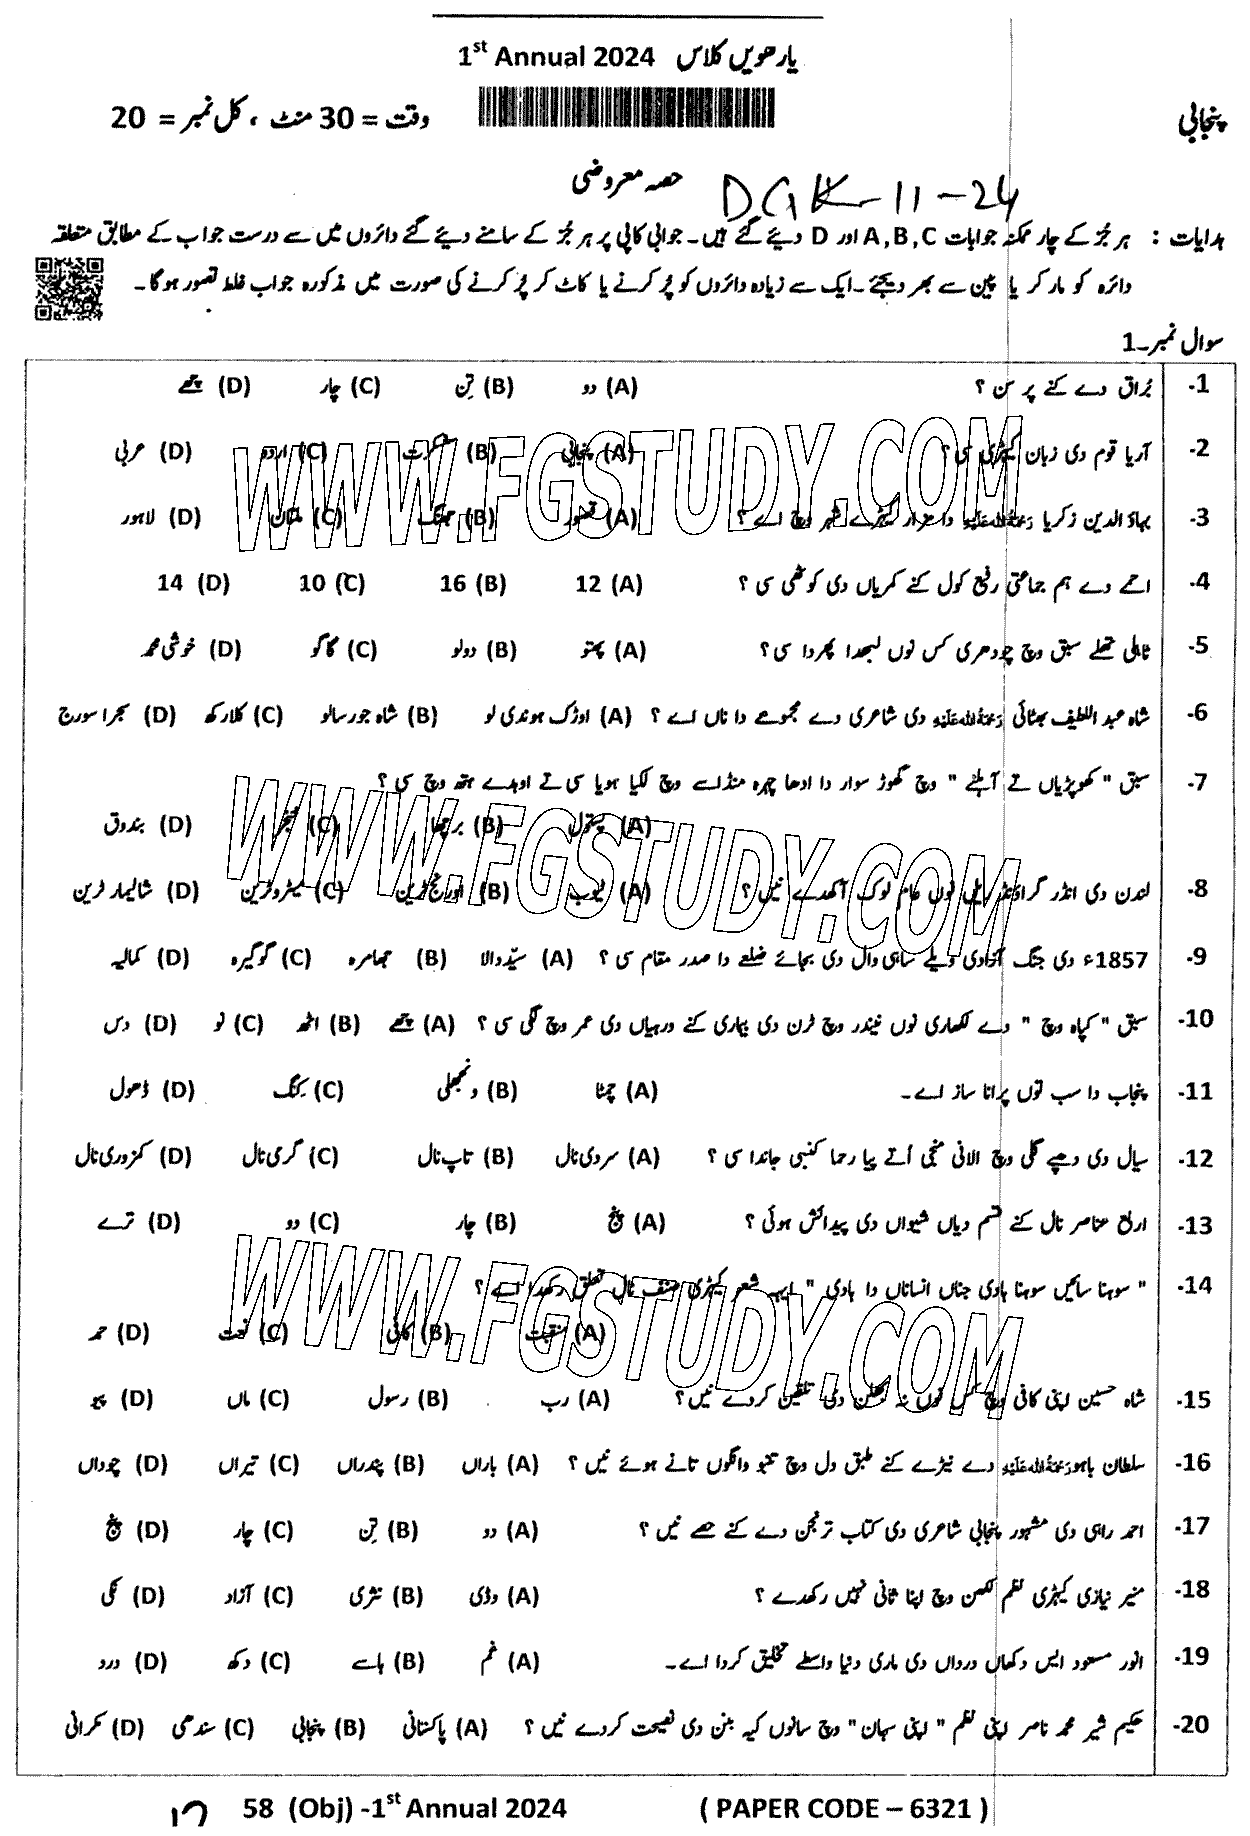 یارھویں کلاس 1st Annual 2024
پنجابی
وقت = 30 منٹ ، کل نمبر = 20
حصہ معروضی
DGK-11-24
ہدایات : ہر جُز کے چار ممکنہ جوابات A,B,C اور D دیئے گئے ہیں۔ جوابی کاپی پر ہر جُز کے سامنے دیئے گئے دائروں میں سے درست جواب کے مطابق متعلقہ
دائرہ کو مارکر یا پین سے بھر دیجئے۔ ایک سے زیادہ دائروں کو پُر کرنے یا کاٹ کر پُر کرنے کی صورت میں مذکورہ جواب غلط تصور ہوگا۔
سوال نمبر۔1
1- بُراق دے کنے پر سن ؟ (A) دو (B) تِن (C) چار (D) چھے
2- آریا قوم دی زبان کیہڑی سی ؟ (A) پنجابی (B) سنسکرت (C) اردو (D) عربی
3- بہاؤ الدین زکریا رَحْمَةُ اللّٰهِ عَلَيْه دا مزار کیہڑے شہر وچ اے ؟ (A) قصور (B) جھنگ (C) ملتان (D) لاہور
4- احمے دے ہم جماعتی رفیع کول کنے کمریاں دی کوٹھی سی ؟ (A) 12 (B) 16 (C) 10 (D) 14
5- ٹاہلی تھلے سبق وچ چودھری کس نوں لبھدا پھردا سی؟ (A) پھتو (B) دولو (C) گاگو (D) خوشی محمد
6- شاہ عبد اللطیف بھٹائی رَحْمَةُ اللّٰهِ عَلَيْه دی شاعری دے مجموعے دا ناں اے ؟ (A) اوڑک ہوندی لو (B) شاہ جو رسالو (C) کلارکھ (D) سجرا سورج
7- سبق " کھوپڑیاں تے آہلنے " وچ گھوڑ سوار دا ادھا چہرہ منڈاسے وچ لکیا ہویا سی تے اوہدے ہتھ وچ سی ؟
(A) پستول (B) برچھا (C) خنجر (D) بندوق
8- لندن دی انڈر گراؤنڈ ٹرین نوں عام لوک آکھدے نیں؟ (A) ٹیوب (B) اورنج ٹرین (C) میٹرو ٹرین (D) شالیمار ٹرین
9- 1857ء دی جنگ آزادی ویلے ساہی وال دی بجائے ضلعے دا صدر مقام سی ؟ (A) سیّد والا (B) جھامرہ (C) گوگیرہ (D) کمالیہ
10- سبق " کپاہ وچ " دے لکھاری نوں نیندر وچ ٹرن دی بیماری کنے ورہیاں دی عمر وچ لگی سی ؟ (A) چھے (B) اٹھ (C) نو (D) دس
11- پنجاب دا سب توں پرانا ساز اے ۔ (A) چمٹا (B) ونجھلی (C) کِنگ (D) ڈھول
12- سیال دی دھپے گلی وچ الانی منجی اُتے پیا رحما کنبی جاندا سی ؟ (A) سردی نال (B) تاپ نال (C) گرمی نال (D) کمزوری نال
13- اربع عناصر نال کنے قسم دیاں شیواں دی پیدائش ہوئی ؟ (A) پنج (B) چار (C) دو (D) ترے
14- " سوہنا سائیں سوہنا ہادی جناں انساناں دا ہادی " ایہہ شعر کیہڑی صنف نال تعلق رکھدا اے ؟
(A) منقبت (B) کافی (C) نعت (D) حمد
15- شاہ حسین اپنی کافی وچ کس نوں نہ بھلن دی تلقین کردے نیں؟ (A) رب (B) رسول (C) ماں (D) پیو
16- سلطان باہو رَحْمَةُ اللّٰهِ عَلَيْه دے نیڑے کنے طبق دل وچ تنبو وانگوں تانے ہوئے نیں ؟ (A) باراں (B) پندراں (C) تیراں (D) چوداں
17- احمد راہی دی مشہور پنجابی شاعری دی کتاب ترنجن دے کنے حصے نیں ؟ (A) دو (B) تِن (C) چار (D) پنج
18- منیر نیازی کیہڑی نظم لکھن وچ اپنا ثانی نہیں رکھدے ؟ (A) وڈی (B) نثری (C) آزاد (D) نکی
19- انور مسعود ایس دکھاں درداں دی ماری دنیا واسطے تخلیق کردا اے۔ (A) غم (B) ہاسے (C) دکھ (D) درد
20- حکیم شیر محمد ناصر اپنی نظم " اپنی سہان" وچ سانوں کیہ بنن دی نصیحت کردے نیں ؟ (A) پاکستانی (B) پنجابی (C) سندھی (D) مکرانی
58 (Obj) -1st Annual 2024 ( PAPER CODE – 6321 )
WWW.FGSTUDY.COM
WWW.FGSTUDY.COM
WWW.FGSTUDY.COM